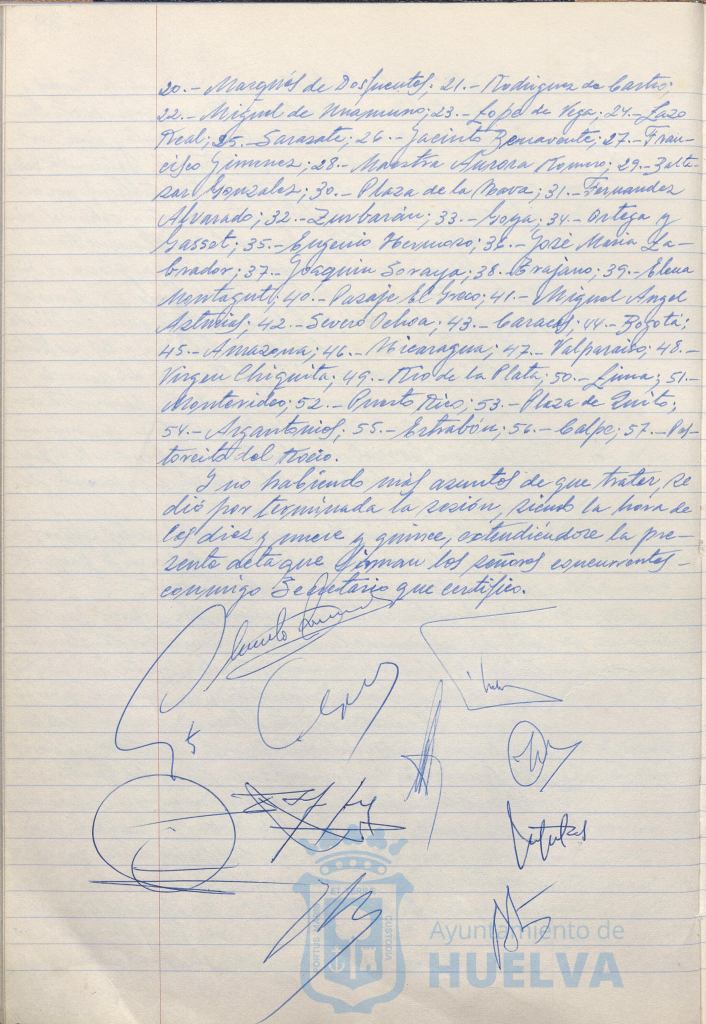 20.- Marqués de Dosfuentes; 21.- Rodriguez de Castro;
22.- Miguel de Unamuno; 23.- Lope de Vega; 24.- Lazo
Real; 25.- Sarasate; 26.- Jacinto Benavente; 27.- Fran-
cisco Gimenez; 28.- Maestra Aurora Romero; 29.- Balta-
sar Gonzalez; 30.- Plaza de la Nava; 31.- Fernandez
Alvarado; 32.- Zurbarán; 33.- Goya; 34.- Ortega y
Gasset; 35.- Eugenio Hermoso; 36.- José Maria La-
brador; 37.- Joaquin Soroya; 38.- Trajano; 39.- Elena
Montagut; 40.- Pasaje El Greco; 41.- Miguel Angel
Asturias; 42.- Severo Ochoa; 43.- Caracas; 44.- Bogotá;
45.- Amazona; 46.- Nicaragua; 47.- Valparaiso; 48.-
Virgen Chiquita; 49.- Rio de la Plata; 50.- Lima; 51.-
Montevideo; 52.- Puerto Rico; 53.- Plaza de Quito;
54.- Argantonios; 55.- Estrabón; 56.- Calpe; 57.- Pas-
torcito del Rocio.
Y no habiendo más asuntos de que tratar, se
dió por terminada la sesión, siendo la hora de
las diez y nueve y quince, extendiéndose la pre-
sente Acta que firman los señores concurrentes
conmigo Secretario que certifico.
Ayuntamiento de
HUELVA